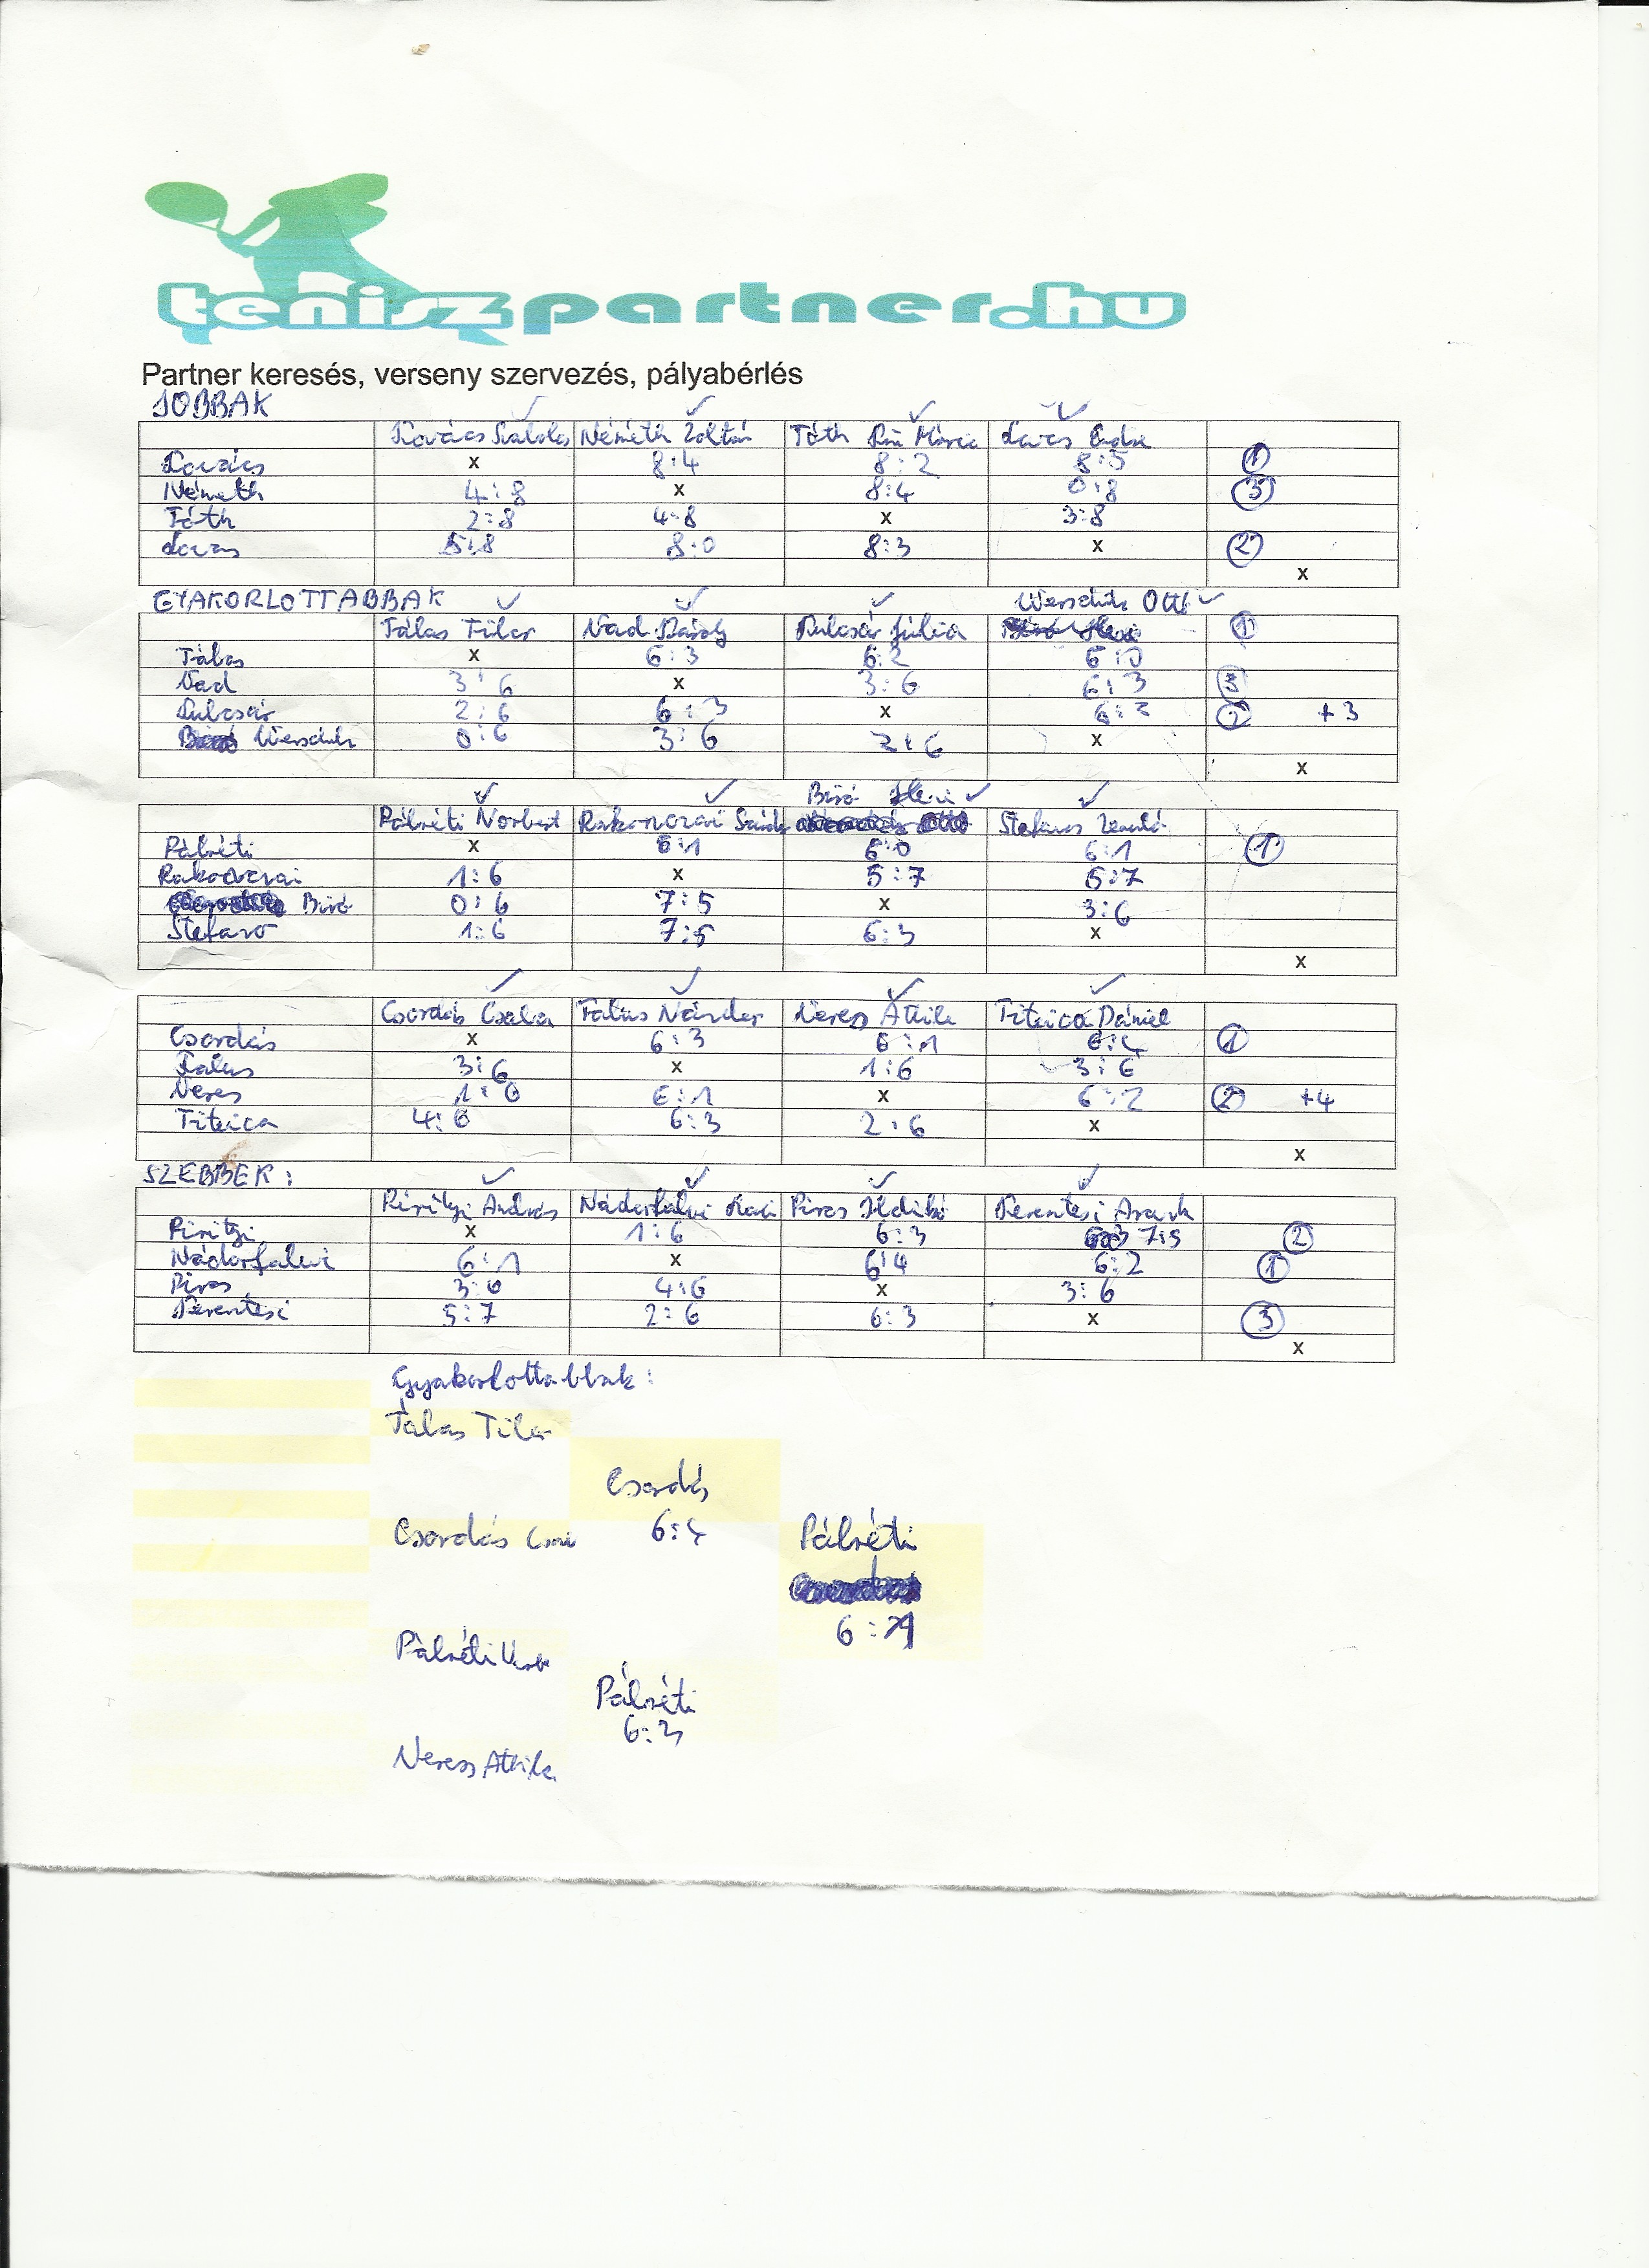 teniszpartner.hu
Partner keresés, verseny szervezés, pályabérlés
JOBBAK
Kovács Szabolcs Németh Zoltán Tóth Mária Lovas Endre
Kovács x 8:4 8:2 8:5 1
Németh 4:8 x 8:4 0:8 3
Tóth 2:8 4:8 x 3:8
Lovas 5:8 8:0 8:3 x 2
x
GYAKORLOTTABBAK Werschitz Ottó
Tálas Tibor Nad Károly Kulcsár Júlia 1
Tálas x 6:3 6:2 6:0
Nad 3:6 x 3:6 6:3 3
Kulcsár 2:6 6:3 x 6:2 2 +3
Werschitz 0:6 3:6 2:6 x
x
Biró
Pálréti Norbert Rakonczai Stefanov
Pálréti x 6:1 6:0 6:1 1
Rakonczai 1:6 x 5:7 5:7
Biró 0:6 7:5 x 3:6
Stefanov 1:6 7:5 6:3 x
x
Csordás Csaba Falus Nándor Veres Attila Titeica Dániel
Csordás x 6:3 6:1 6:4 1
Falus 3:6 x 1:6 3:6
Veres 1:6 6:1 x 6:2 2 +4
Titeica 4:6 6:3 2:6 x
x
SZEBBEK:
Pirityi András Nádorfalvi Piros Ildikó Kerentesi
Pirityi x 1:6 6:3 7:5 2
Nádorfalvi 6:1 x 6:4 6:2 1
Piros 3:6 4:6 x 3:6
Kerentesi 5:7 2:6 6:3 x 3
x
Gyakorlottabbak:
Tálas Tibor
Csordás
Csordás 6:4
Pálréti
6:1
Pálréti
Pálréti
6:3
Veress Attila